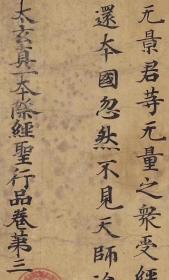 无景君等无量之衆受經
還本國忽然不見天師
太玄真一本際經聖行品卷第三